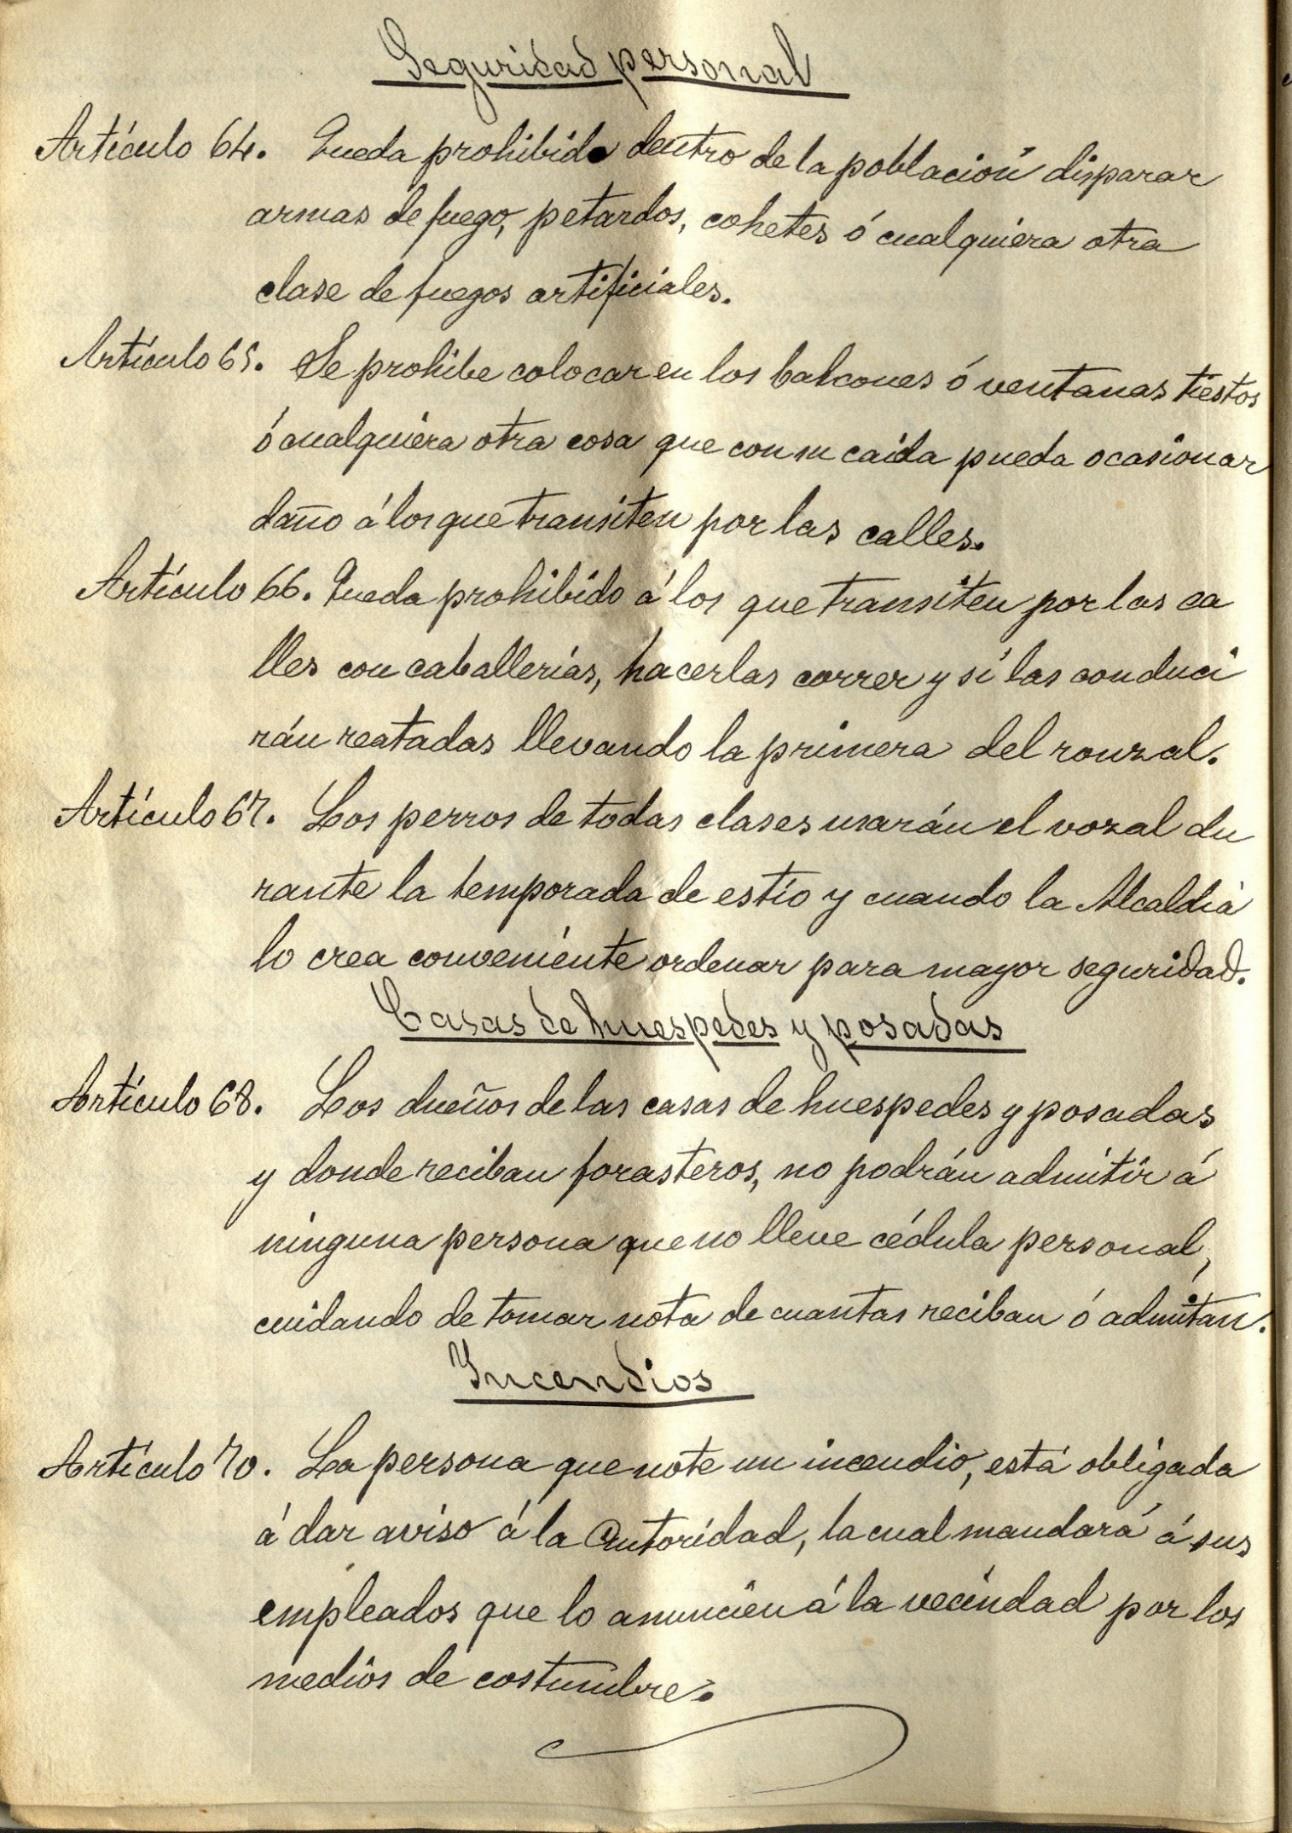 Seguridad personal
Artículo 64. Queda prohibido dentro de la población disparar
armas de fuego, petardos, cohetes ó cualquiera otra
clase de fuegos artificiales.
Artículo 65. Se prohibe colocar en los balcones ó ventanas tiestos
ó cualquiera otra cosa que con su caida pueda ocasionar
daño á los que transiten por las calles.
Artículo 66. Queda prohibido á los que transiten por las ca
lles con caballerías, hacerlas correr y sí las conduci
rán reatadas llevando la primera del ronzal.
Artículo 67. Los perros de todas clases usarán el vozal du
rante la temporada de estío y cuando la Alcaldía
lo crea conveniente ordenar para mayor seguridad.
Casas de huespedes y posadas
Artículo 68. Los dueños de las casas de huespedes y posadas
y donde reciban forasteros, no podrán admitir á
ninguna persona que no lleve cédula personal,
cuidando de tomar nota de cuantas reciban ó admitan.
Incendios
Artículo 70. La persona que note un incendio, está obligada
á dar aviso á la Autoridad, la cual mandará á sus
empleados que lo anuncien á la vecindad por los
medios de costumbre.